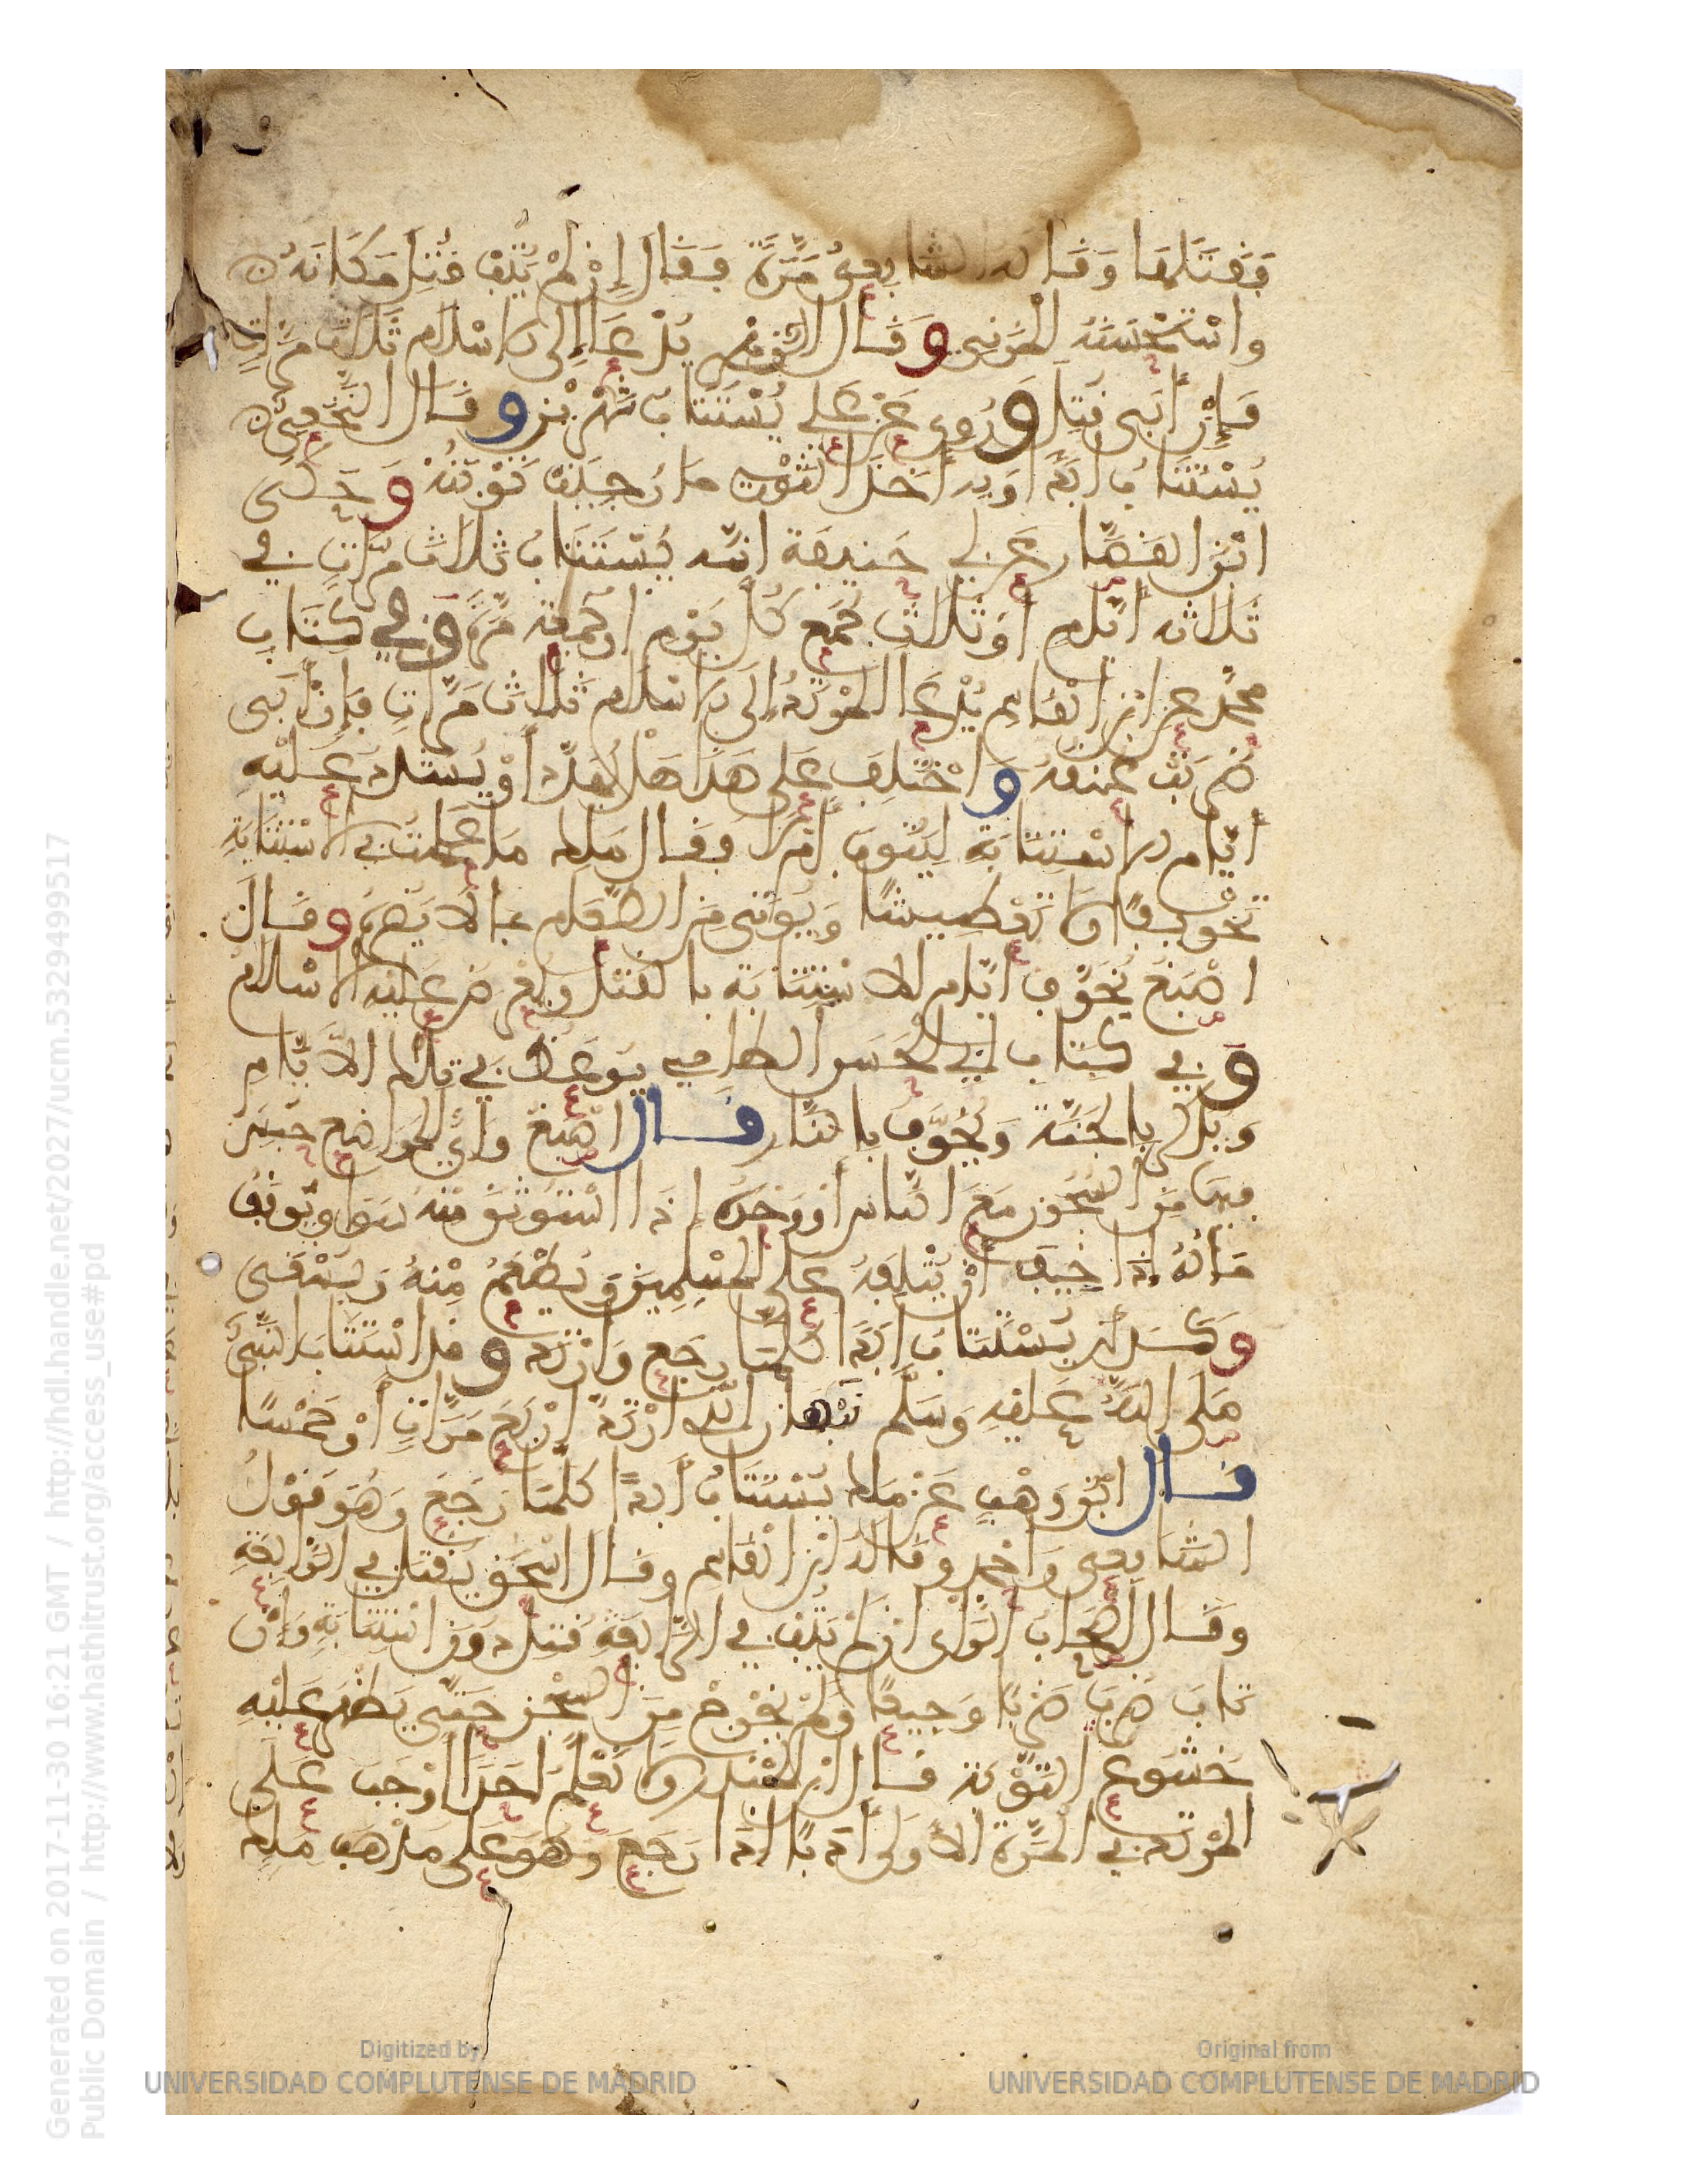 فقتلها وقاله الشافعي مرة فقال إن لم يتب قتل مكانه
واستحسنه المزني وقال الزهري يدعا إلى الاسلام ثلاث مرات
فإن أبى قتل وروي عن علي يستتاب شهرين وقال النخعي
يستتاب ابدا وبه أخذ الثوري ما رجيت توبته وحكى
ابن القصار عن ابي حنيفة انه يستتاب ثلاث مرات في
ثلاثه ايام أو ثلاث جمع كل يوم او جمعة مرة وفي كتاب
محمد عن ابن القاسم يدعا المرتد إلى الاسلام ثلاث مرات فإن أبى
ضربت عنقه واختلف على هذا هل يهدد أو يشدد عليه
أيام الاستتابة ليتوب أم لا فقال ملك ما علمت في الاستتابة
تخويفا ولا تعطيشا ويؤتى من الطعام بما لا يضره وقال
اصبغ يخوف أيام الاستتابة بالقتل ويعرض عليه الاسلام
وفي كتاب ابي الحسن الطابثي يوعظ في تلك الأيام
ويذكر بالجنة ويخوف بالنار قال اصبغ وأي المواضع حبس
فيها من السجون مع الناس أو وحده إذا استوثق منه سوا ويوقف
ماله إذا خيف أن يتلفه على المسلمين ويطعم منه ويسقى
وكذلك يستتاب ابدا كلما رجع وارتد وقد استتاب النبي
صلى الله عليه وسلم نبهان الذي ارتد اربع مرات أو خمسا
قال ابن وهب عن ملك يستتاب أبدا كلما رجع وهو قول
الشافعي وأحمد وقاله ابن القاسم وقال اسحق يقتل في الرابعة
وقال أصحاب الرأي إن لم يتب في الرابعة قتل دون استتابة وإن
تاب ضرب ضربا وجيعا ولم يخرج من السجن حتى يظهر عليه
خشوع التوبة قال ابن المنذر ولا نعلم احدا أوجب على
المرتد في المرة الأولى أدبا إذا رجع وهو على مذهب ملك
Generated on 2017-11-30 16:21 GMT / http://hdl.handle.net/2027/ucm.5329499517
Public Domain / http://www.hathitrust.org/access_use#pd
Digitized by
UNIVERSIDAD COMPLUTENSE DE MADRID
Original from
UNIVERSIDAD COMPLUTENSE DE MADRID